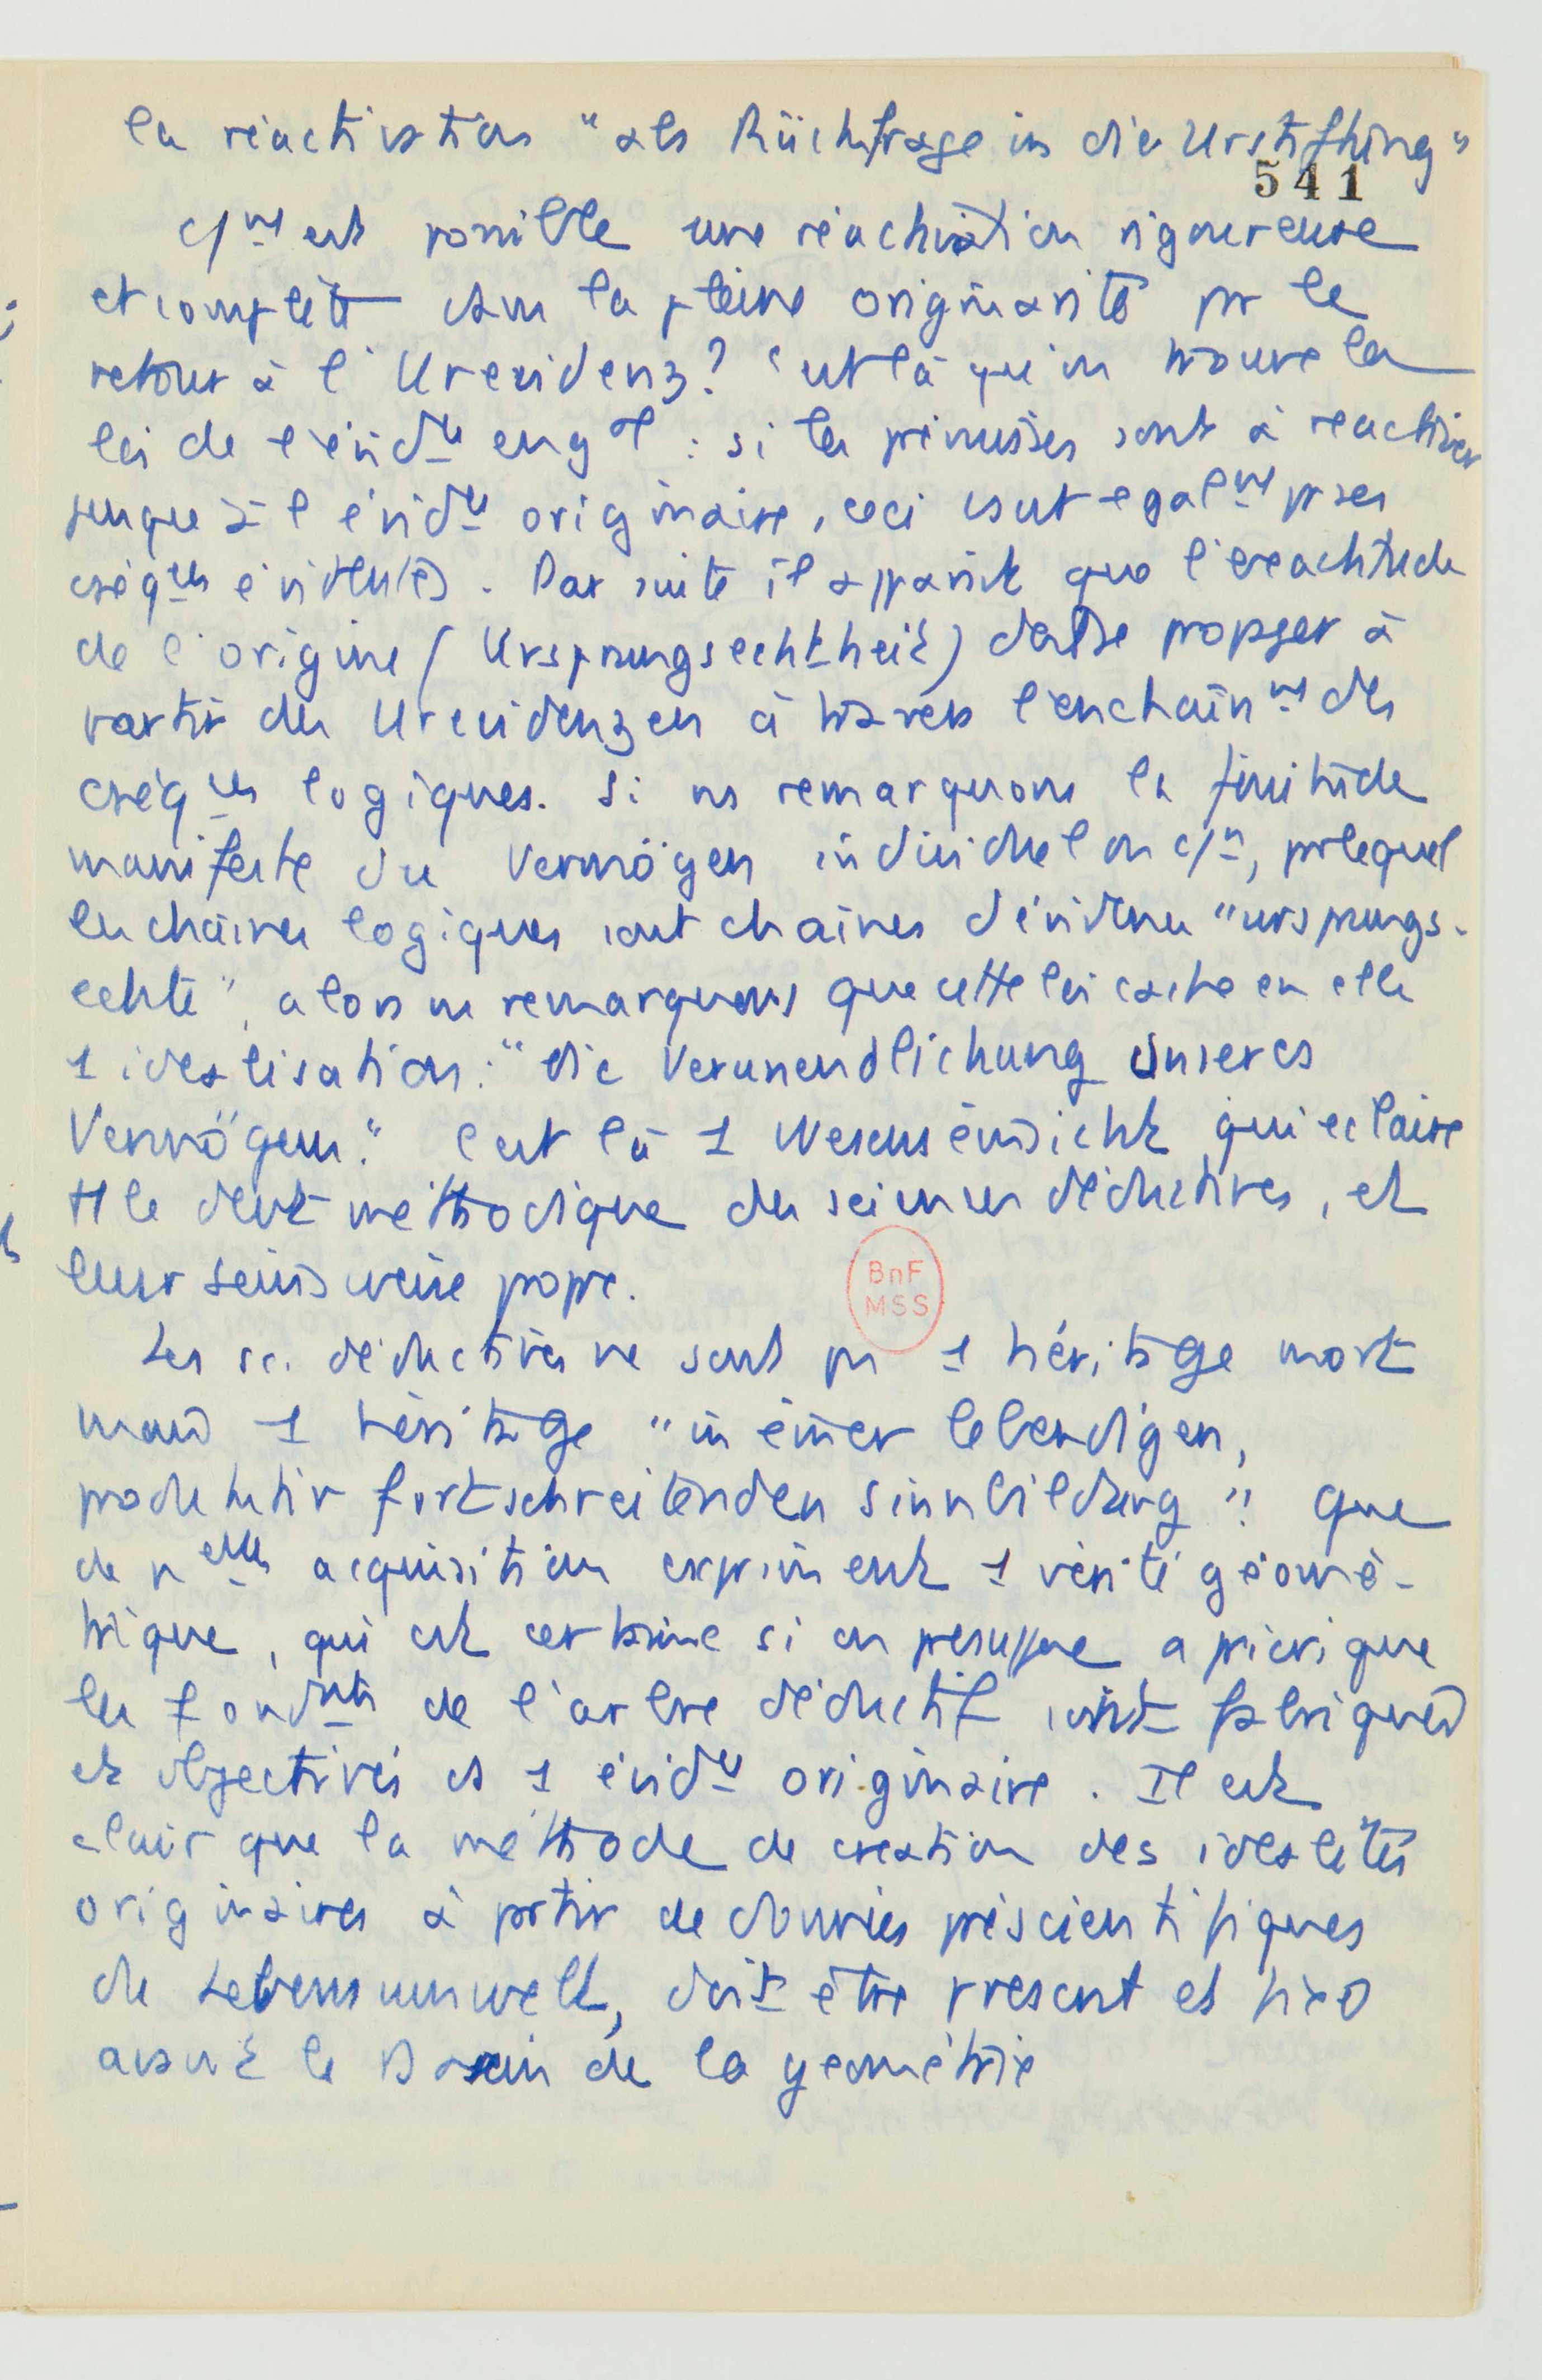 la réactivation "als Rückfrage in die Urstiftung"
541
c/mt est possible une réactivation rigoureuse
et complète dans la pleine originarité pr le
retour à l'Urevidenz? C'est là qu'on trouve la
loi de l'évidce en gal : si les prémisses sont à réactiver
jusqu'à l'évidce originaire, ceci vaut égalmt pr ses
cséqces évidentes. Par suite il apparaît que l'exactitude
de l'origine (Ursprungsechtheit) doit se propager à
partir des Urevidenzen à travers l'enchaînmt des
cséqces logiques. Si ns remarquons la finitude
manifeste du Vermögen individuel ou c/n, pr lequel
les chaînes logiques sont chaînes d'évidence "ursprungs-
echte", alors ns remarquons que cette loi cache en elle
1 idéalisation : "die Verunendlichung unseres
Vermögens." C'est là 1 Wesenseinsicht qui éclaire
tt le devt méthodique des sciences déductives, et
leur Seinsweise propre.
BnF
MSS
Les sc. déductives ne sont pas 1 héritage mort
mais 1 héritage "in einer lebendigen,
produktiv fortschreitenden Sinnbildung". Que
de nelles acquisitions expriment 1 vérité géomé-
trique, qui est certaine si on présuppose a priori que
les fondmts de l'arbre déductif sont fabriqués
et objectivés ds 1 évidce originaire. Il est
clair que la méthode de création des idéalités
originaires à partir de données préscientifiques
du Lebensumwelt, doit être présent et fixé
avant le Dasein de la géométrie